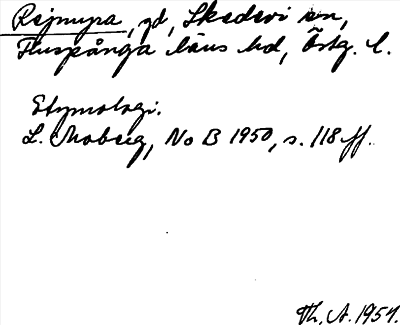 Rejmyra, gd, Skedevi sn,
Finspånga läns hd, Östg. l.
Etymologi.
L. Moberg, No B 1950, s. 118 ff.
Th. A. 1951.